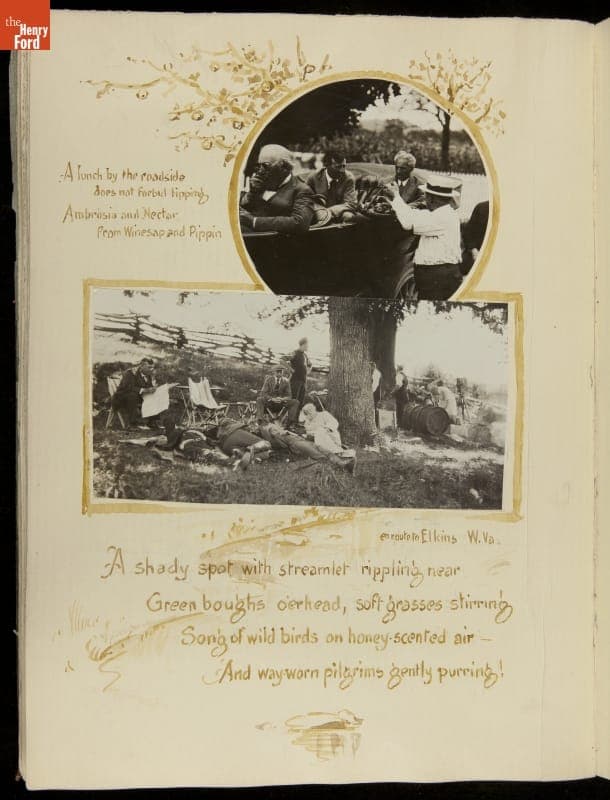 the
Henry
Ford
A lunch by the roadside
does not forbid tipping,
Ambrosia and Nectar
From Winesap and Pippin
en route to Elkins W. Va.
A shady spot with streamlet rippling near
Green boughs o'erhead, soft grasses stirring
Song of wild birds on honey-scented air –
And way-worn pilgrims gently purring!